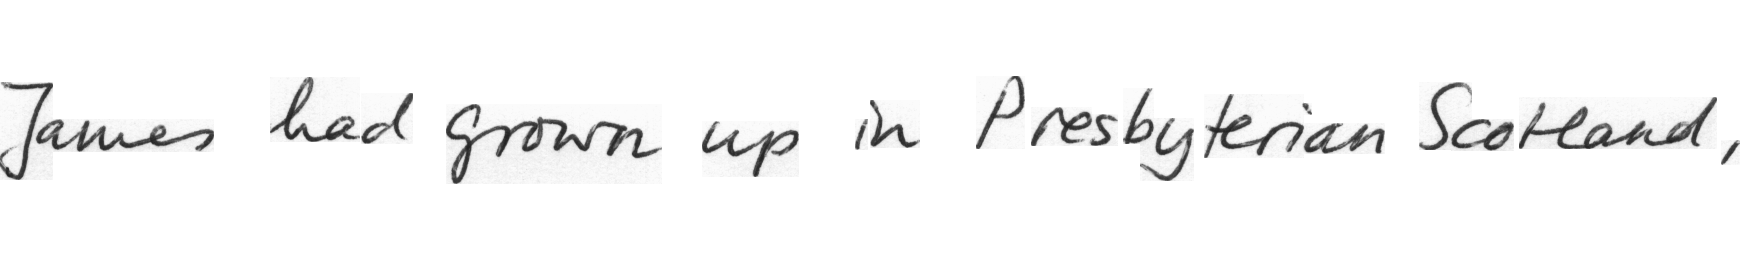 James had grown up in Presbyterian Scotland,